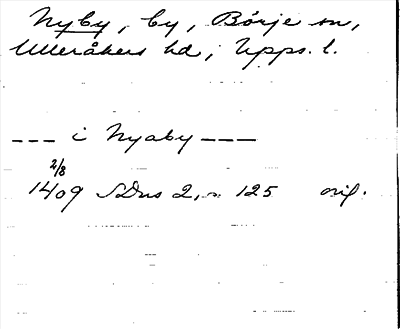 Nyby, by, Börje sn,
Ulleråkers hd, Upps. l.
--- i Nyaby ---
2/8
1409 SDns 2, s. 125 orig.